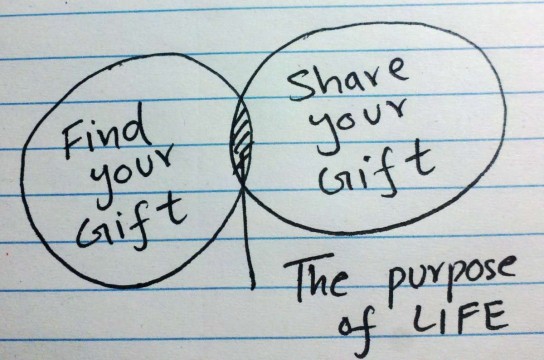 Find
your
Gift
Share
your
Gift
The purpose
of LIFE